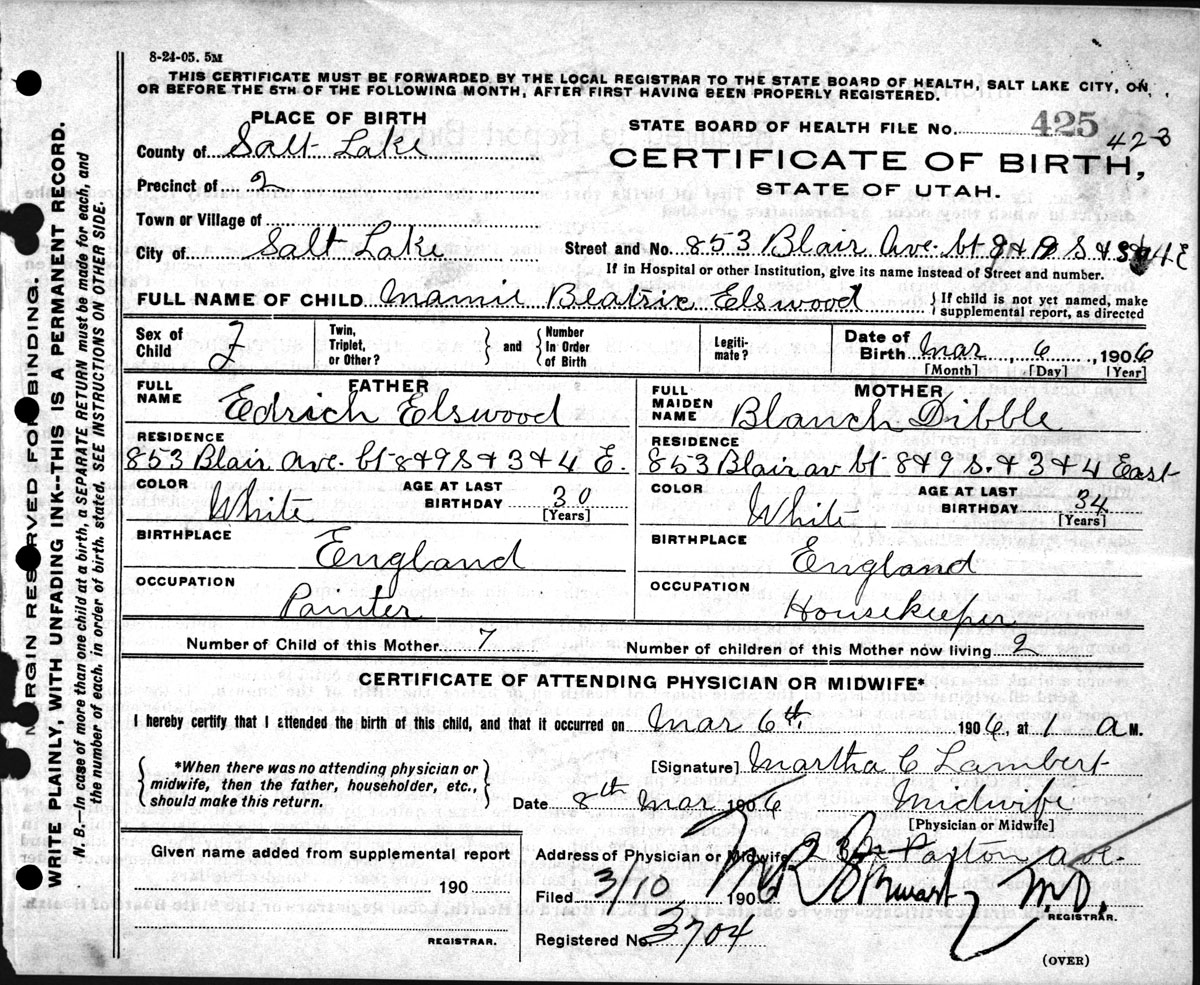 8-24-05. 5M
THIS CERTIFICATE MUST BE FORWARDED BY THE LOCAL REGISTRAR TO THE STATE BOARD OF HEALTH, SALT LAKE CITY, ON,
OR BEFORE THE 5TH OF THE FOLLOWING MONTH, AFTER FIRST HAVING BEEN PROPERLY REGISTERED.
MARGIN RESERVED FOR BINDING.
WRITE PLAINLY, WITH UNFADING INK--THIS IS A PERMANENT RECORD.
N. B.—In case of more than one child at a birth, a SEPARATE RETURN must be made for each, and
the number of each, in order of birth, stated, SEE INSTRUCTIONS ON OTHER SIDE.
PLACE OF BIRTH
County of Salt Lake
Precinct of 2
Town or Village of
City of Salt Lake
STATE BOARD OF HEALTH FILE NO. 425 423
CERTIFICATE OF BIRTH,
STATE OF UTAH.
Street and No. 853 Blair Ave. bt 8 & 9 S & 3 & 4 E
If in Hospital or other Institution, give its name instead of Street and number.
FULL NAME OF CHILD Mamie Beatrix Elswood
If child is not yet named, make
supplemental report, as directed
Sex of
Child F
Twin,
Triplet,
or Other?
and
Number
In Order
of Birth
Legiti-
mate?
Date of
Birth Mar, 6, 1906
[Month] [Day] [Year]
FATHER
FULL
NAME Edrich Elswood
RESIDENCE
853 Blair Ave. bt 8 & 9 S & 3 & 4 E.
COLOR White
AGE AT LAST
BIRTHDAY 30
[Years]
BIRTHPLACE England
OCCUPATION
Painter
MOTHER
FULL
MAIDEN
NAME Blanch Dibble
RESIDENCE
853 Blair av bt 8 & 9 S. & 3 & 4 East
COLOR White
AGE AT LAST
BIRTHDAY 34
[Years]
BIRTHPLACE England
OCCUPATION
Housekeeper
Number of Child of this Mother 7
Number of children of this Mother now living 2
CERTIFICATE OF ATTENDING PHYSICIAN OR MIDWIFE*
I hereby certify that I attended the birth of this child, and that it occurred on Mar 6th. 1906, at 1 a M.
*When there was no attending physician or
midwife, then the father, householder, etc.,
should make this return.
[Signature] Martha C Lambert
Date 8th Mar 1906 Midwife
[Physician or Midwife]
Given name added from supplemental report
190
REGISTRAR.
Address of Physician or Midwife Paxton Ave.
Filed 3/10 1906 M.D.
REGISTRAR.
Registered No. 3704
(OVER)